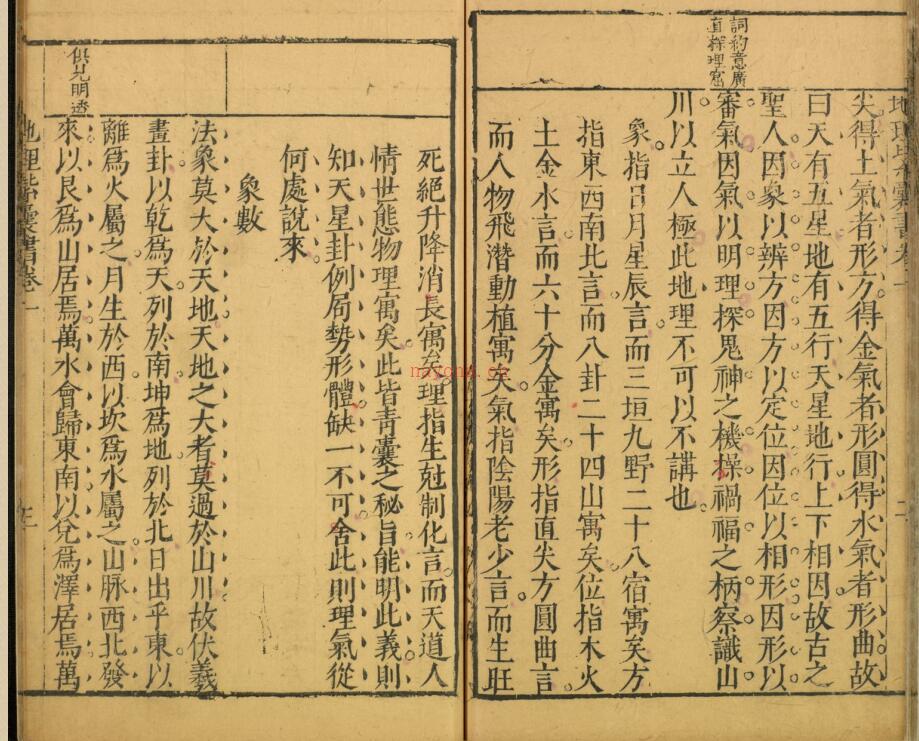 詞約意廣
直探理窟
尖得土氣者形方得金氣者形圓得水氣者形曲故
曰天有五星地有五行天星地行上下相因故古之
聖人因象以辨方因方以定位因位以相形因形以
審氣因氣以明理探鬼神之機操禍福之柄察識山
川以立人極此地理不可以不講也
象指日月星辰言而三垣九野二十八宿寓矣方
指東西南北言而八卦二十四山寓矣位指木火
土金水言而六十分金寓矣形指直尖方圓曲言
而人物飛潛動植寓矣氣指陰陽老少言而生旺
二
供九明透
死絕升降消長寓矣理指生尅制化言而天道人
情世態物理寓矣此皆青囊之秘旨能明此義則
知天星卦例局勢形體缺一不可舍此則理氣從
何處說來
象數
法象莫大於天地天地之大者莫過於山川故伏羲
畫卦以乾爲天列於南坤爲地列於北日出乎東以
離爲火屬之月生於西以坎爲水屬之山脉西北發
來以艮爲山居焉萬水會歸東南以兌爲澤居焉萬
地理紫囊書卷一
三
maycng.cn